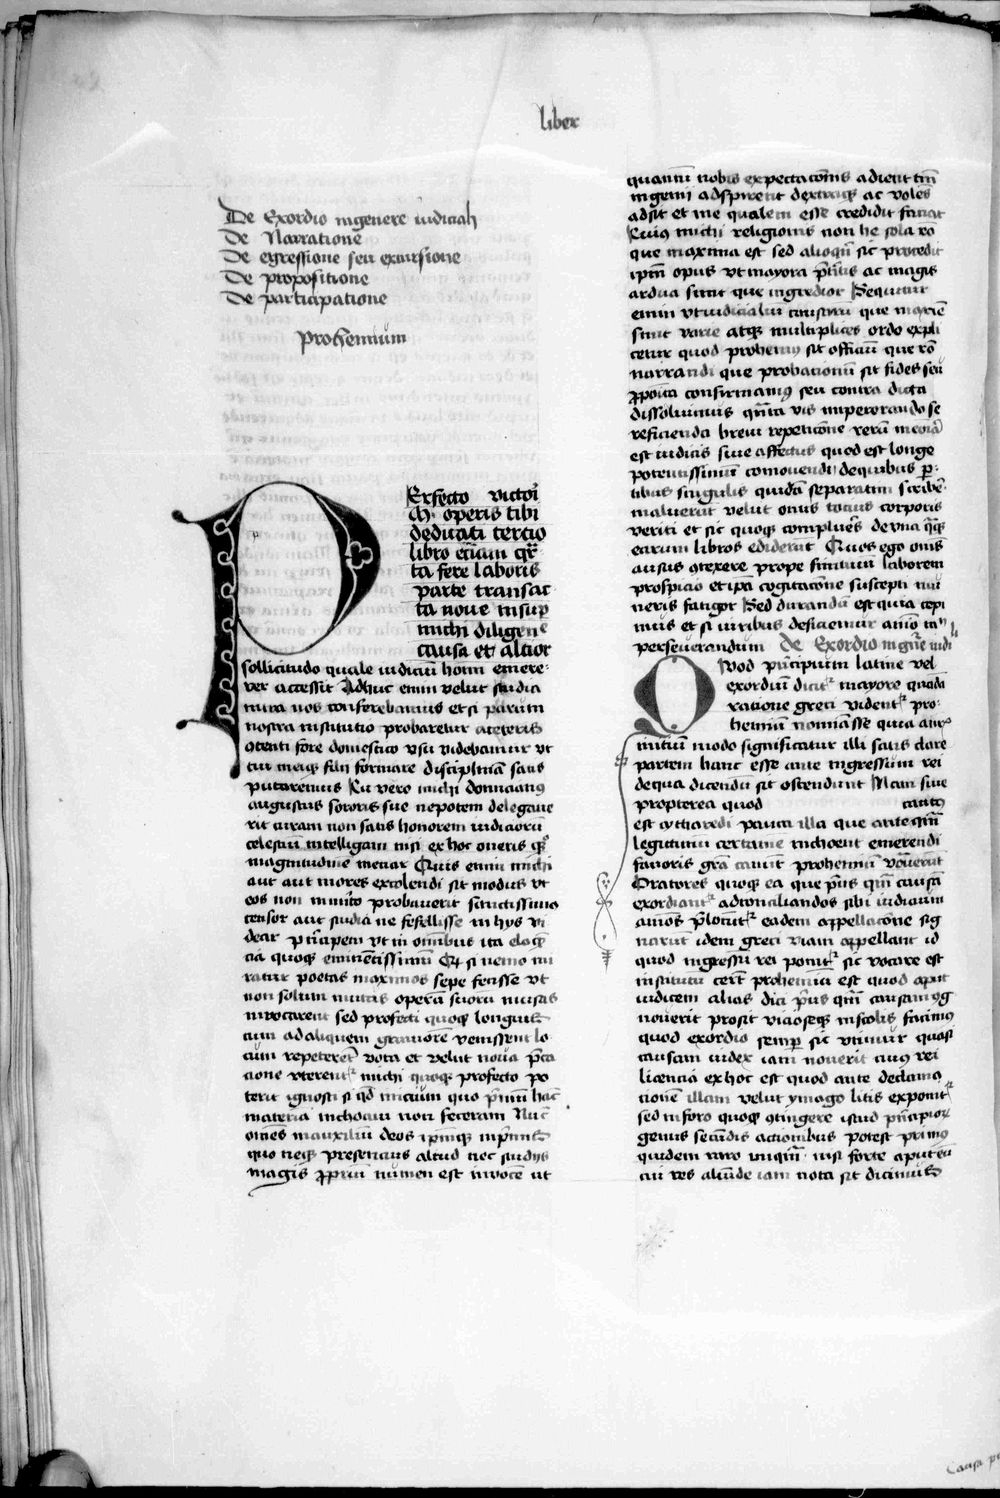 liber
De Exordio in genere iudiciali
De Narratione
De egressione seu excursione
De propositione
De participatione
Prohemium
PErfecto victori
ch operis tibi
dedicati tercio
libro eciam qr̄
ta fere laboris
parte transac
ta noue insup
michi diligene
causa et altior
sollicitudo quale iudiciū hoīm emere-
rer accessit Adhuc enim velut studia
inter nos conferebamus et si parum
nostra institutio probaretur a ceteris
ɔtenti fore domestico vsu videbamur vt
tui meiqꝫ filii formare disciplinā satis
putaremus Cū vero michi domicianꝰ
augustus sororis sue nepotem delegaue
rit curam non satis honorem iudiciorū
celestiū intelligam nisi ex hoc oneris qͦꝫ
magnitudine metiar Quis enim michi
aut aut mores excolendi sit modus vt
eos non inmito probauerit sanctissimꝰ
censor aut studia ne fefellisse in hys vi
dear prīcipem vt in omībus ita eloqē
cia quoqꝫ eminētissimū Qꝫ si nemo mi
ratur poetas maximos sepe fecisse vt
non solum iniciis operū suorū musas
inuocarent sed profecti quoqꝫ longius
cum ad aliquem grauiorē venissent lo
cum repeterēt vota et velut noua p̄ca
cione vterentᷣ michi quoqꝫ profecto po
terit ignosci si qd̄ inicium quo prīmū hāc
materiā inchoaui non feceram Nūc
om̄es in auxiliū deos ipm̄qꝫ inprimis
quo neqꝫ presencius aliud nec studijs
magis ꝓprium numen est inuocē ut
quantū nobis expectacōnis adiecit tm̄
ingenii adspiret dexterqꝫ ac volēs
adsit et me qualem esse credidit faciat
Cuiꝰ michi religionis non he sola rō
que maxima est sed alioqn̄ sic procedit
ipm̄ opus vt maiora p̄teritis ac magis
ardua sint que ingredior Sequitur
enim vt iudicialiū causarū que maxīe
sunt varie atqꝫ multiplices ordo expli
cetur quod prohemij sit officiū que rō
narrandi que probationū sit fides seu
ꝓpōita confirmamꝰ seu contra dicta
dissoluimus qn̄ta vis in perorando se
reficienda breui repeticōne rerū meōia
est iudicis siue affectus quod est longe
potentissimū cōmouendi de quibus p̱-
tibus singulis quidā separatim scribē-
maluerūt velut onus tocius corporis
veriti et sic quoqꝫ complures de vna qͣqꝫ
earum libros ediderūt Quos ego om̄s
ausus ɔtexere prope infinitū laborem
prospicio et ipā cogitacōne suscepti mu
neris fatigor Sed durandū est quia cepi
mus et si viribus deficiemur aīo tn̄
perseuerandum De Exordio in gn̄e iudi
QUod prīcipium latine vel
exordiū dicitᷣ mayore quadā
ratione greci videntᷣ pro-
hemiū nomīasse quia a nr̄is
initiū modo significatur illi satis clare
partem hanc esse ante ingressum rei
de qua dicendū sit ostendunt Nam siue
propterea quod cantꝰ
est cytharedi pauca illa que anteqm̄
legitimū certamē inchoent emerendi
fauoris grā canūt prohemiū vōauerūt
Oratores quoqꝫ ea que prīus qm̄ causā
exordiantᷣ ad conciliandos sibi iudicum
animos prelocūtᷣ eadem appellacōne sig
narūt idem greci viam appellant id
quod ingressu rei ponitᷣ sic vocare est
institutū certe prohemiū est quod aput
iudicem alias dici prīus qm̄ causam ɔg
nouerit prosit viciōseqꝫ in scolis facimus
quod exordio semp̱ sic vtimur quasi
causam iudex iam nouerit cuiꝰ rei
licencia ex hoc est quod ante declama
cionē illam velut ymago litis exponitᷣ
sed in foro quoqꝫ ɔtingere istud prīcipiorꝫ
genus secūdis actionibus potest primis
quidem raro vnqm̄ nisi forte aput eū
cui res aliūde iam nota sit dicimus
Causa pr